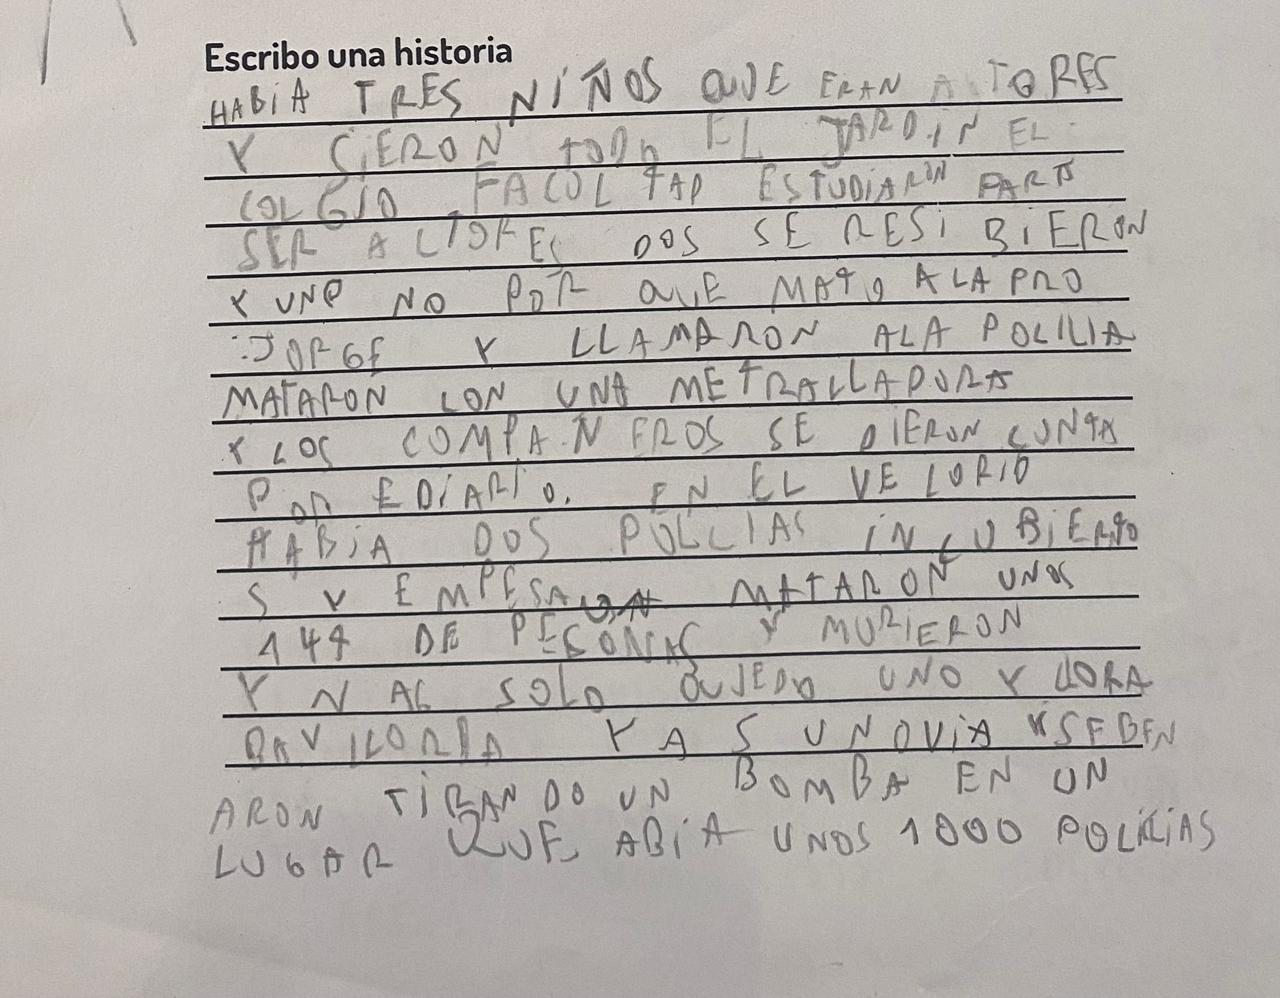 Escribo una historia
HABIA TRES NIÑOS QUE ERAN A TORES
Y SIERON TODO EL JARDIN EL
COLGIO FACULTAD ESTUDIARON PARA
SER ACTORES DOS SE RESIBIERON
Y UNO NO POR QUE MATO A LA PRO
JORGE Y LLAMARON ALA POLICIA
MATARON CON UNA METRALLADORA
Y LOS COMPAÑEROS SE DIERON CUNTA
POR EDIARIO. EN EL VELORIO
HABIA DOS POLCIAS INCUBIERTO
S Y EMPESA MATARON UNOS
149 DE PESONAS Y MURIERON
Y NAC SOLO QUEDO UNO Y LLORA
BA Y LLORBA Y A SU NOVIA Y SE BEN
ARON TIRANDO UN BOMBA EN UN
LUGAR QUE ABIA UNOS 1000 POLICIAS